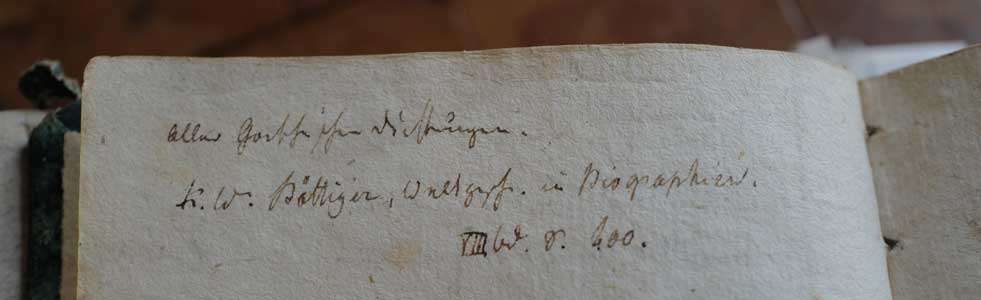 aller Goethischen Dichtungen.
K. W. Böttiger, Weltgesch. in Biographien.
VIII bd. S. 600.